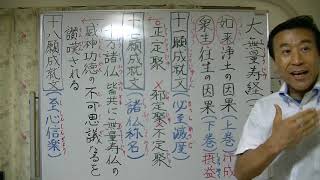 大無量寿経
如来浄土の因果(上巻)
衆生往生の因果(下巻)
十一願成就文(必至滅度)
正定聚 邪定聚 不定聚
十七願成就文(諸仏称名)
十方諸仏 皆共に無量寿仏の
威神功徳の不可思議なるを
讃嘆される
十八願成就文(至心信楽)